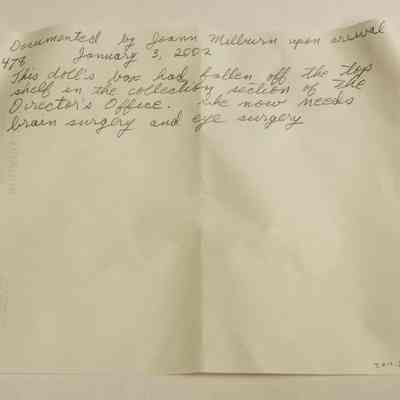 Documented by Joann Milburn upon arrival
478 January 3, 2002
This doll's box had fallen off the top
shelf in the collection section of the
Director's Office. She now needs
brain surgery and eye surgery